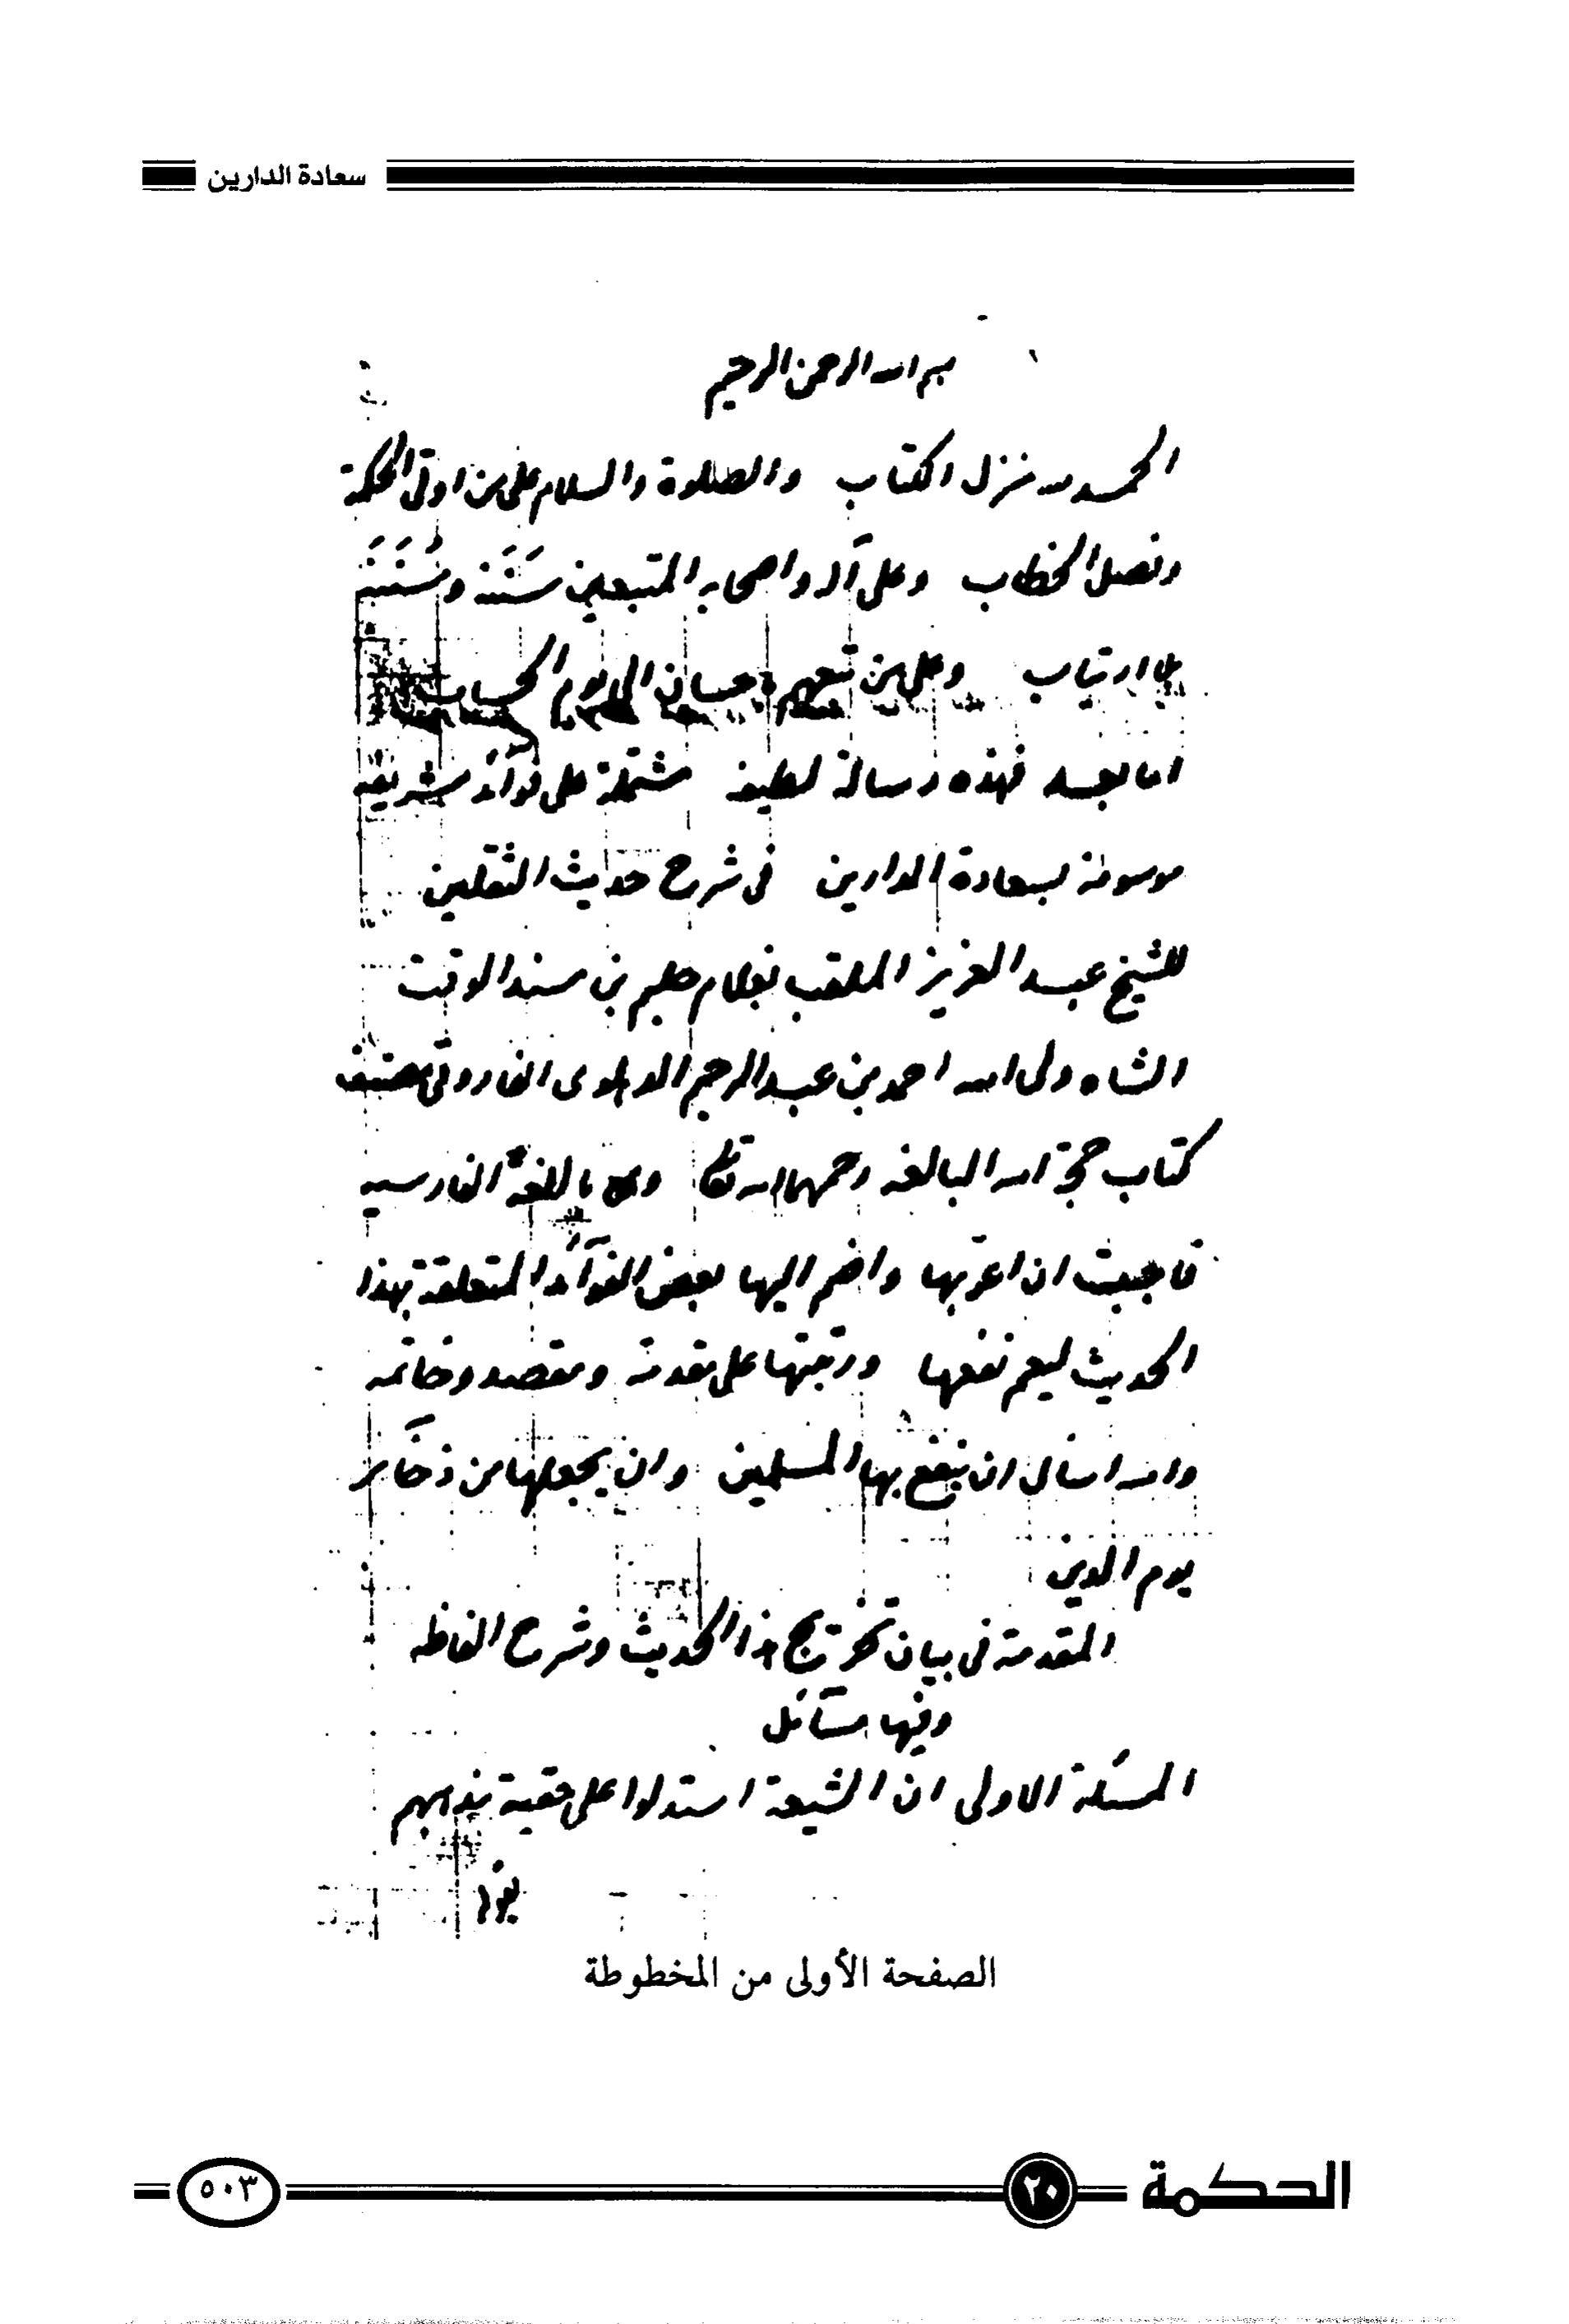 سعادة الدارين
بسم الله الرحمن الرحيم
الحمد لله منزل الكتاب والصلوة والسلام على من اوتى الحكمة
وفصل الخطاب وعلى آله واصحابه المتبعين سَنَنه وسُنَنَه
بلا ارتياب وعلى من تبعهم باحسان الى يوم الحساب
اما بعد فهذه رسالة لطيفة مشتملة على فوآئد شريفة
موسومة بسعادة الدارين فى شرح حديث الثقلين
للشيخ عبد العزيز الملقب بغلام حليم بن مسند الوقت
الشاه ولى الله احمد بن عبد الرحيم الدهلوى الفاروقى مصنف
كتاب حجة الله البالغة رحمهما الله تعالى وهى باللغة الفارسية
فاحببت ان اعرّبها واضم اليها بعض الفوآئد المتعلقة بهذا
الحديث ليعم نفعها ورتبتها على مقدمة ومقصد وخاتمة
والله اسأل ان ينفع بها المسلمين وان يجعلها من ذخآئر
يوم الدين
المقدمة فى بيان تخريج هذا الحديث وشرح الفاظه
وفيها مسآئل
المسئلة الاولى ان الشيعة استدلوا على حقية مذهبهم
بهذا
الصفحة الأولى من المخطوطة
الحكمة ٢٠ ٥٠٣